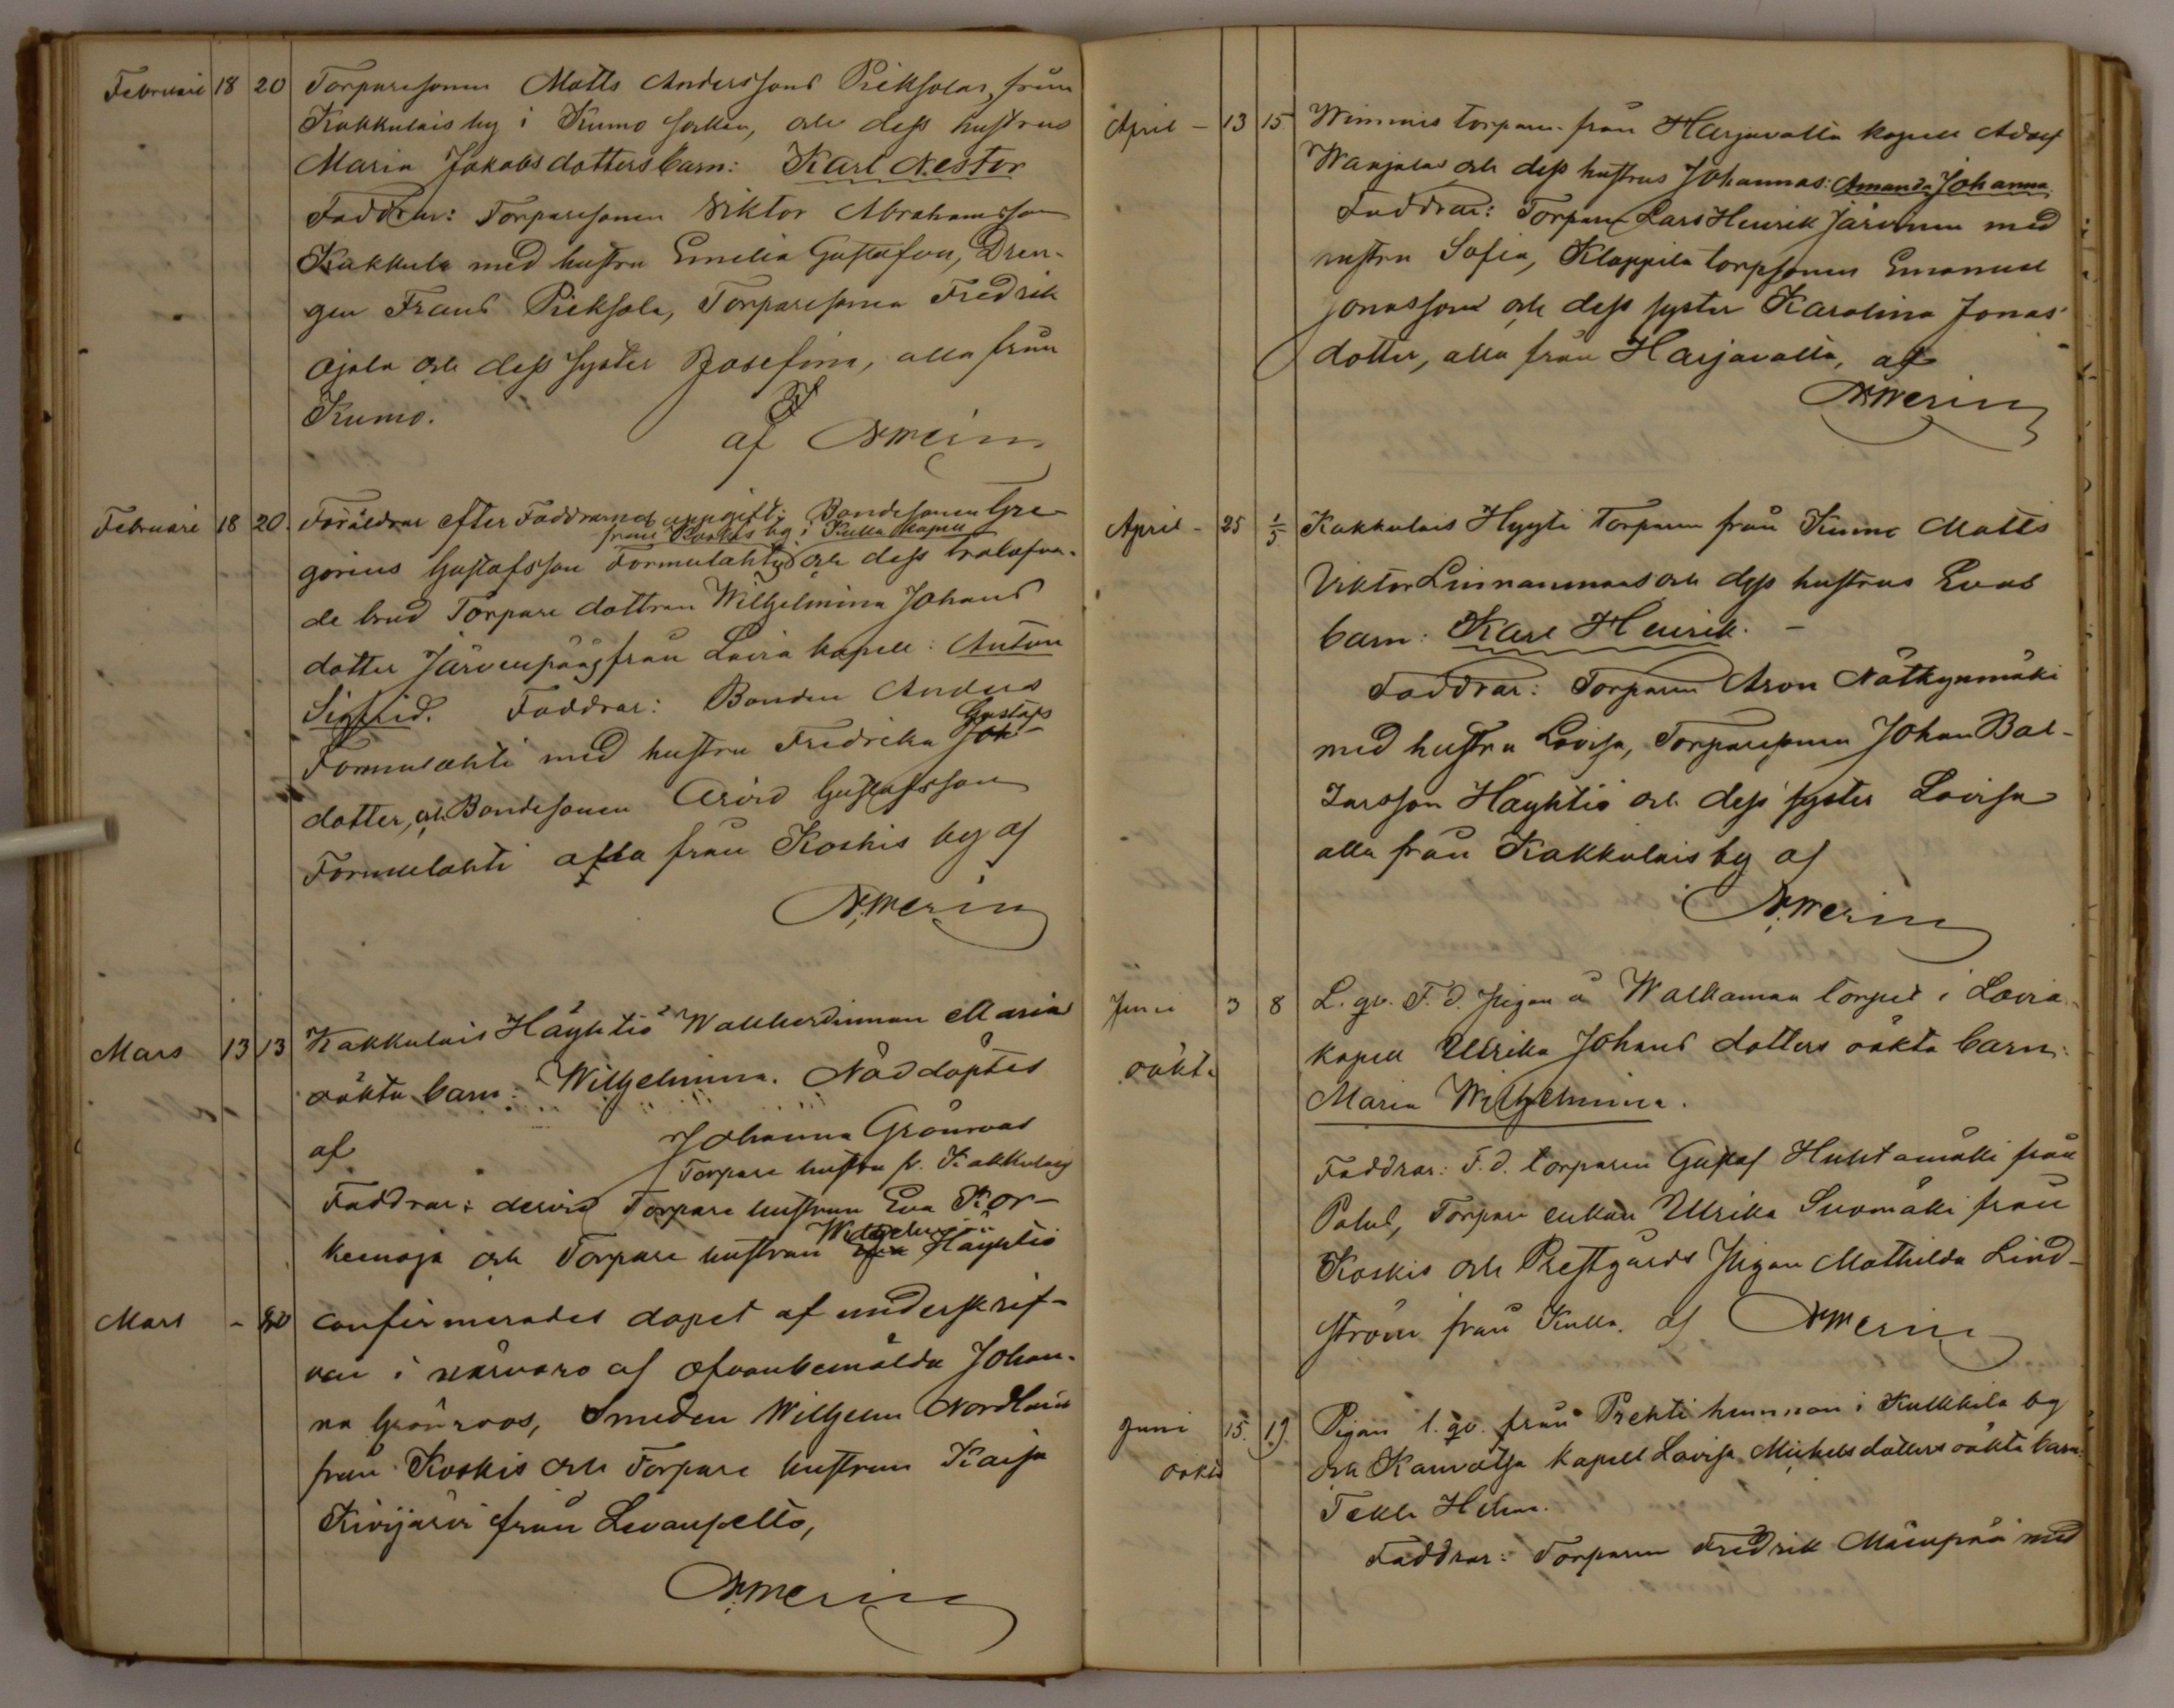 Februari 18 20 Torparesonen Matts Anderssons Pieksolas, från
Kakkulais by i Kumo socken, och dess hustrus
Maria Jakobsdotters barn: Karl Nestor
Faddrar: Torparesonen Viktor Abrahamsson
Kakkula med hustru Emelia Gustafva, Dren-
gen Frans Pieksola, Torparesonen Fredrik
Ojala och dess syster Josefina, alla från
Kumo.
af NMerin
Februari 18 20. Föräldrar efter Faddrarnes uppgift: Bondesonen Gre-
från Koskis by i Kulla kapell
gorius Gustafsson Formulahtis och dess trolofva-
de brud Torpare dottren Wilhelmina Johans
dotter Järvenpääs från Lavia kapell: Anton
Sigfrid. Faddrar: Bonden Anders
Gustafs
Formulahti med hustru Fredrika Joh-
dotter, och Bondesonen Arvid Gustafsson
Formulahti alla från Koskis by af
N.Merin
Mars 13 13 Kakkulais Häyhtiö Wallherdinnan Marias
oäkta barn: Wilhelmina. Nöddöptes
af Johanna Grönroos
Torpare hustru fr. Kakkulais
Faddrar: dervid Torpare hustrun Eva Kor-
Wilhelmina
keenoja och Torpare hustrun Eva Häyhtiö
Mars - 20 confirmerades dopet af underskrif-
ven i närvaro af ofvanbemälda Johan-
na Grönroos, Smeden Wilhelm Nordlund
från Koskis och Torpare hustrun Kaisa
Kivijärvi från Levanpelto,
N.Merin
April - 13 15 Wimmis torparen från Harjavalta kapell Adolf
Wanjalas och dess hustrus Johannas: Amanda Johanna
Faddrar: Torparen Lars Henrik Järvinen med
hustru Sofia, Klappila torpsonen Emanuel
Jonasson och dess syster Karolina Jonas
dotter, alla från Harjavalta, af
NMerin
April - 25 1/5 Kakkulais Hyyti Torparen från Kumo Matts
Viktor Linnanmaas och dess hustrus Evas
barn: Karl Henrik. -
Faddrar: Torparen Aron Nätkynmäki
med hustru Lovisa, Torparesonen Johan Bal-
tarsson Häyhtiö och dess syster Lovisa
alla från Kakkulais by af
N.Merin
Juni 3 8 L. qv. F. d. pigan å Walkaman torpet i Lavia
oäkta
kapell Ulrika Johans dotters oäkta barn:
Maria Wilhelmina.
Faddrar: F. d. torparen Gustaf Huhtamäki från
Palus, Torpare enkan Ulrika Suomäki från
Koskis och Prestgårds pigan Mathilda Lind-
ström från Kulla. af NMerin
Juni 15. 19. Pigan l. qv. från Prehti hemman i Kulkkila by
oäkta
och Kauvatsa kapell Lovisa Mickelsdotters oäkta barn:
Tekla Helena.
Faddrar: Torparen Fredrik Mäenpää med